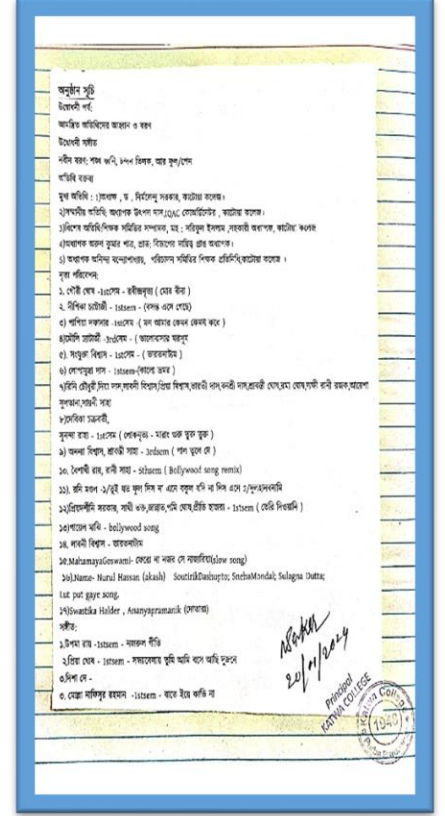 অনুষ্ঠান সূচি
উদ্বোধনী পর্ব:
আমন্ত্রিত অতিথিদের আহ্বান ও বরণ
উদ্বোধনী সঙ্গীত
নবীন বরণ: শঙ্খ ধ্বনি, চন্দন তিলক, আর ফুল/পেন
অতিথি বক্তব্য
মুখ্য অতিথি : ১)অধ্যক্ষ , ড . নির্মলেন্দু সরকার, কাটোয়া কলেজ।
২)সম্মানীয় অতিথি: অধ্যাপক উৎপল দাস,IQAC কোঅর্ডিনেটর , কাটোয়া কলেজ।
৩)বিশেষ অতিথি:শিক্ষক সমিতির সম্পাদক, মহ : সরিফুল ইসলাম ,সহকারী অধ্যাপক, কাটোয়া কলেজ
৪)অধ্যাপক অরুন কুমার পাত্র, প্রাত: বিভাগের দায়িত্ব প্রাপ্ত অধ্যাপক।
৫) অধ্যাপক অনিন্দ্য বন্দ্যোপাধ্যায়, পরিচালন সমিতির শিক্ষক প্রতিনিধি,কাটোয়া কলেজ ।
নৃত্য পরিবেশন:
১. গৌরী ঘোষ -1stসেম - রবীন্দ্রনৃত্য ( মোর বীনা )
২. দীপিকা চ্যাটার্জী - 1stsem - (বসন্ত এসে গেছে)
৩) পাপিয়া দফাদার -1stসেম -( মন আমার কেমন কেমন করে )
৪)মৌলি চ্যাটার্জী -3rdসেম - ( ভালোবাসার মরসুম
৫). সংযুক্তা বিশ্বাস - 1stসেম - ( ভারতনাট্যম )
৬) লোপামুদ্রা দাস - 1stসেম-(কালো ভ্রমর )
৭)রিনি চৌধুরী,দিয়া দাস,লাবনী বিশ্বাস,প্রিয়া বিশ্বাস,ভারতী দাস,বনশ্রী দাস,শ্রাবন্তী ঘোষ,রমা ঘোষ,লক্ষী রানী রজক,আয়েশা
সুলতানা,সায়নী সাহা
৮)দেবিকা চক্রবর্তী,
সুনন্দা রাহা - 1stসেম ( লোকনৃত্য - মারাং গুরু তুরু তুরু )
৯) অনন্যা বিশ্বাস, শ্রাবন্তী সাহা - 3rdsem ( পাল তুলে দে )
১০. বৈশাখী রায়, রানী সাহা - 5thsem ( Bollywood song remix)
১১). রনি মণ্ডল -১/তুই যত ফুল দিস না এনে বকুল যদি না দিল এনে ২/দুলহান বনামি
১২)প্রিয়দর্শীনি সরকার, সাথী ভক্ত,জান্নাত,পমি ঘোষ,প্রীতি হাজরা - 1stsem ( তেরি দিওয়ানি )
১৩)পায়েল মাঝি - bollywood song
১৪. লাবনী বিশ্বাস - ভারতনাট্যম
১৫.MahamayaGoswami- ফেরো না নজর সে নাজারিয়া(slow song)
১৬).Name- Nurul Hassan (akash) SoutirikDashupto; SnehaMondal; Sulagna Dutta;
Lut put gaye song.
১৭)Swastika Halder , Ananyapramanik (দোতারা)
সঙ্গীত:
১.উপমা রায় -1stsem - নজরুল গীতি
২.প্রিয়া ঘোষ - 1stsem - সন্ধ্যাবেলায় তুমি আমি বসে আছি দুজনে
৩.দিশা দে -
৩. মোল্লা নাফিসুর রহমান -1stsem - বাতে ইয়ে কাভি না
20/01/2024
Principal
KATWA COLLEGE
Katwa College
1948